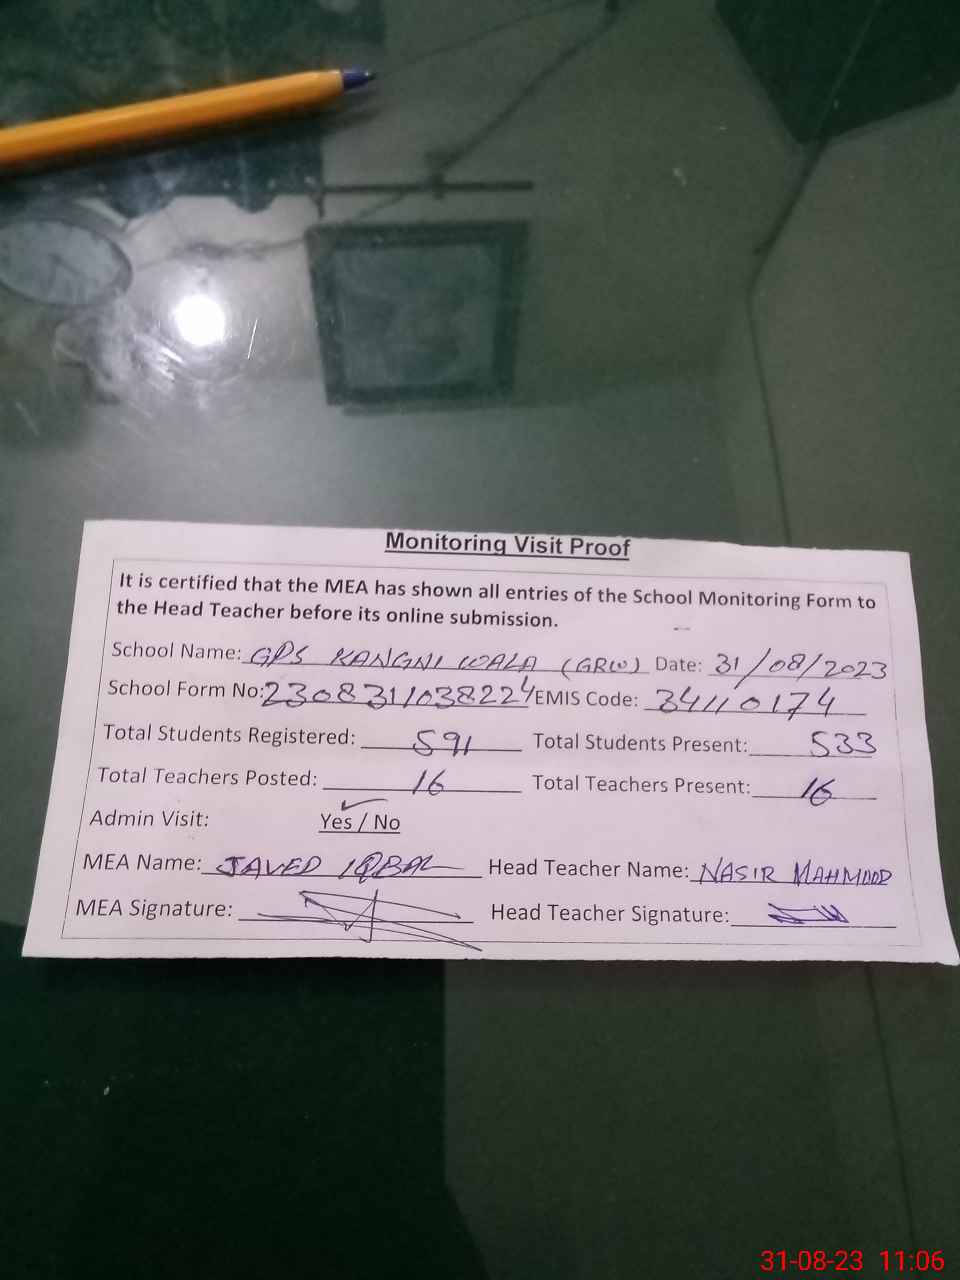 Monitoring Visit Proof
It is certified that the MEA has shown all entries of the School Monitoring Form to
the Head Teacher before its online submission.
School Name: GPS KANGNI WALA (GRW) Date: 31/08/2023
School Form No: 23083110382224 EMIS Code: 34110174
Total Students Registered: 591 Total Students Present: 533
Total Teachers Posted: 16 Total Teachers Present: 16
Admin Visit: Yes / No
MEA Name: JAVED IQBAL Head Teacher Name: NASIR MAHMOOD
MEA Signature: Head Teacher Signature:
31-08-23 11:06